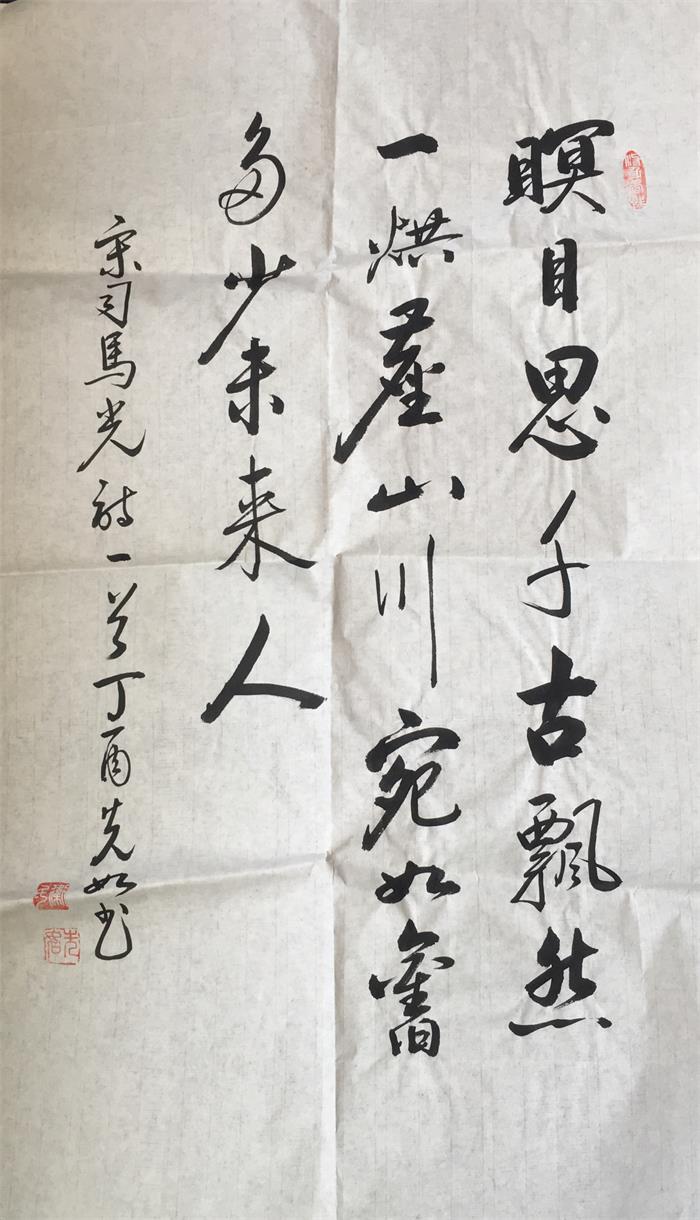 瞑目思千古飘然
一烘塵山川宛如舊
多少未来人
宋司馬光詩一首丁酉先如书